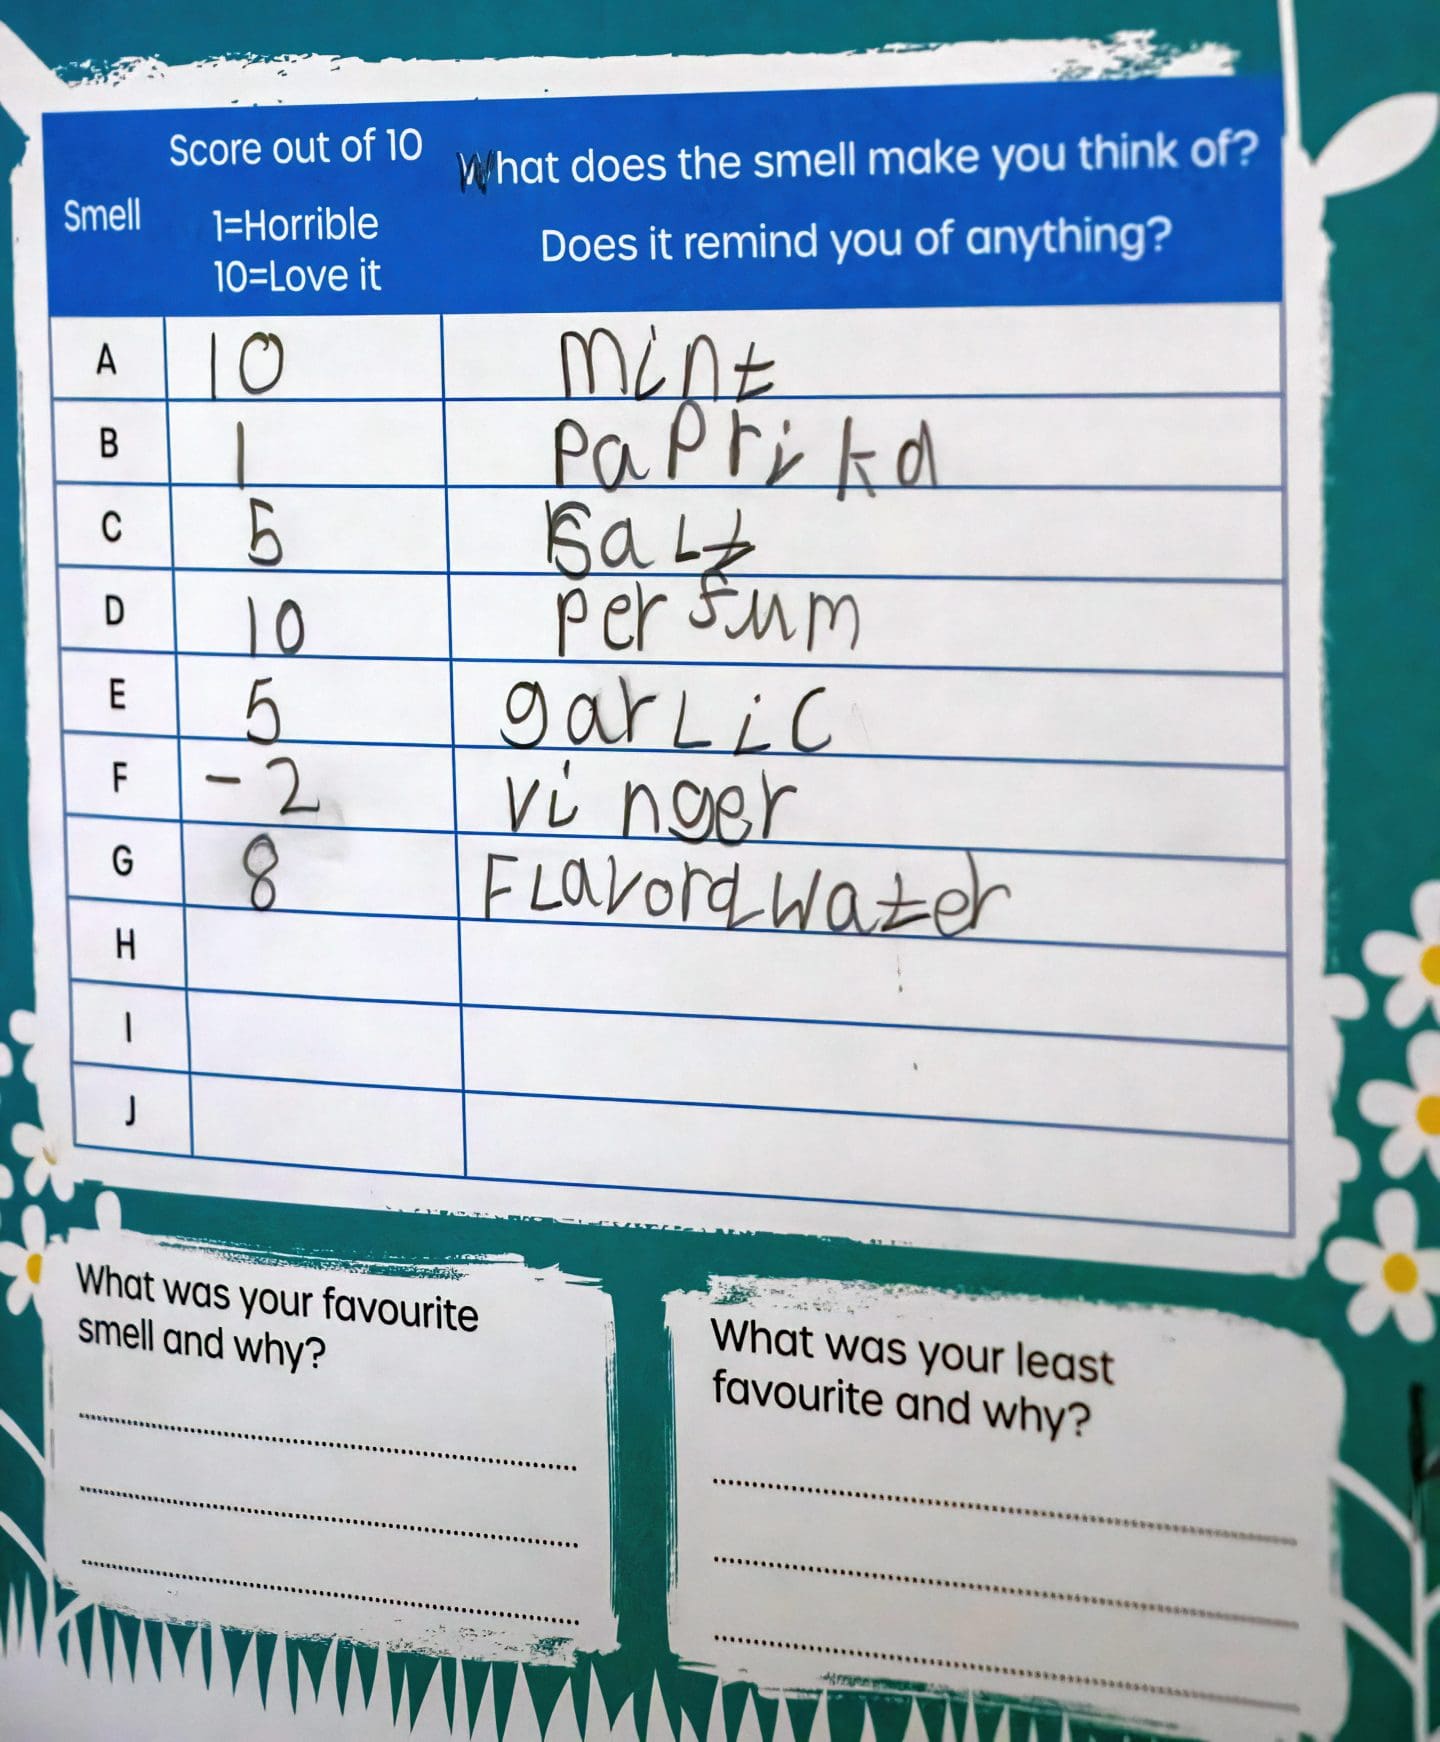 Score out of 10
What does the smell make you think of?
Smell
1=Horrible
Does it remind you of anything?
10=Love it
A 10 mint
B 1 paprika
C 5 Salt
D 10 perfum
E 5 garlic
F -2 vinger
G 8 Flavord water
H
I
J
What was your favourite
smell and why?
What was your least
favourite and why?